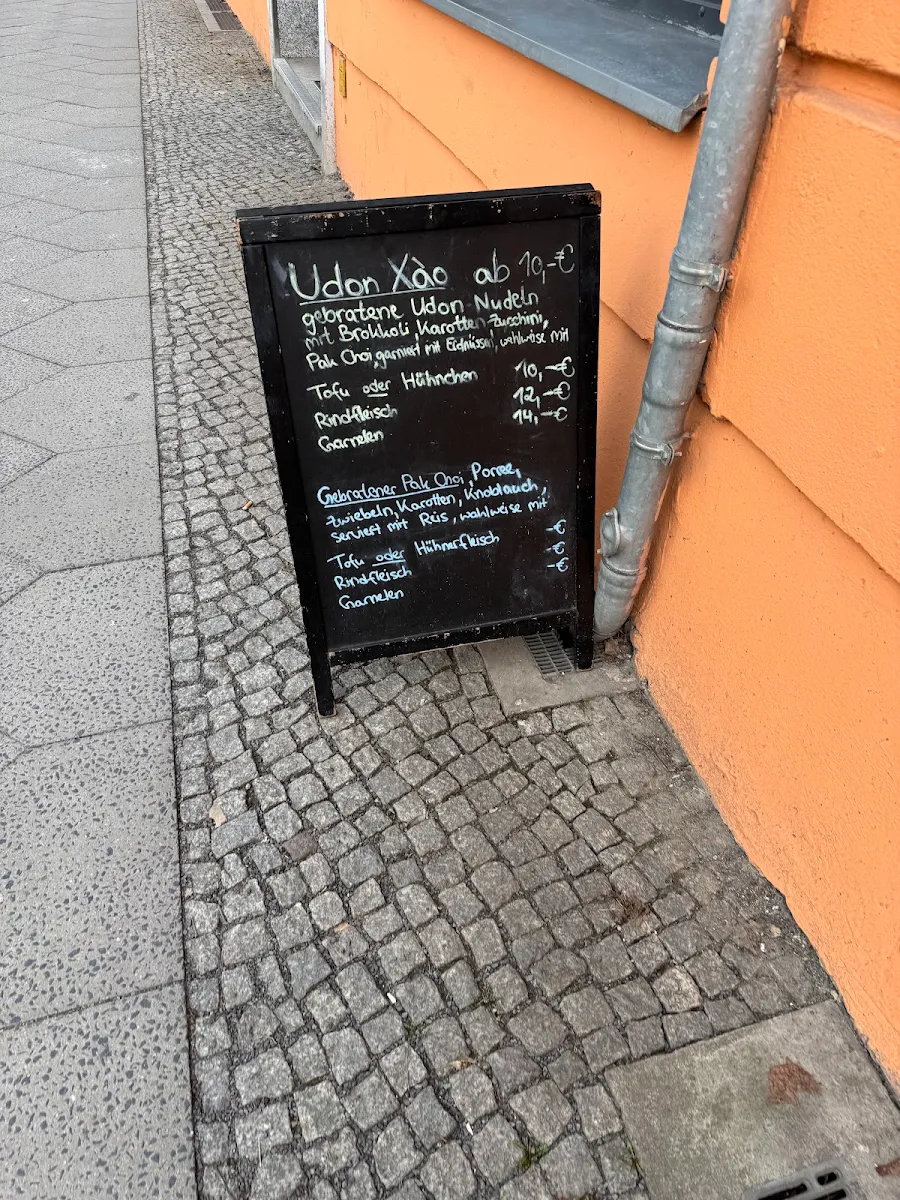 Udon Xào ab 10,-€
gebratene Udon-Nudeln
mit Brokkoli Karotten-Zucchini,
Pak Choi, garniert mit Erdnüssen, wahlweise mit
Tofu oder Hühnchen 10,-€
Rindfleisch 12,-€
Garnelen 14,-€
Gebratener Pak Choi, Porree,
Zwiebeln, Karotten, Knoblauch,
serviert mit Reis, wahlweise mit
Tofu oder Hühnerfleisch -€
Rindfleisch -€
Garnelen -€